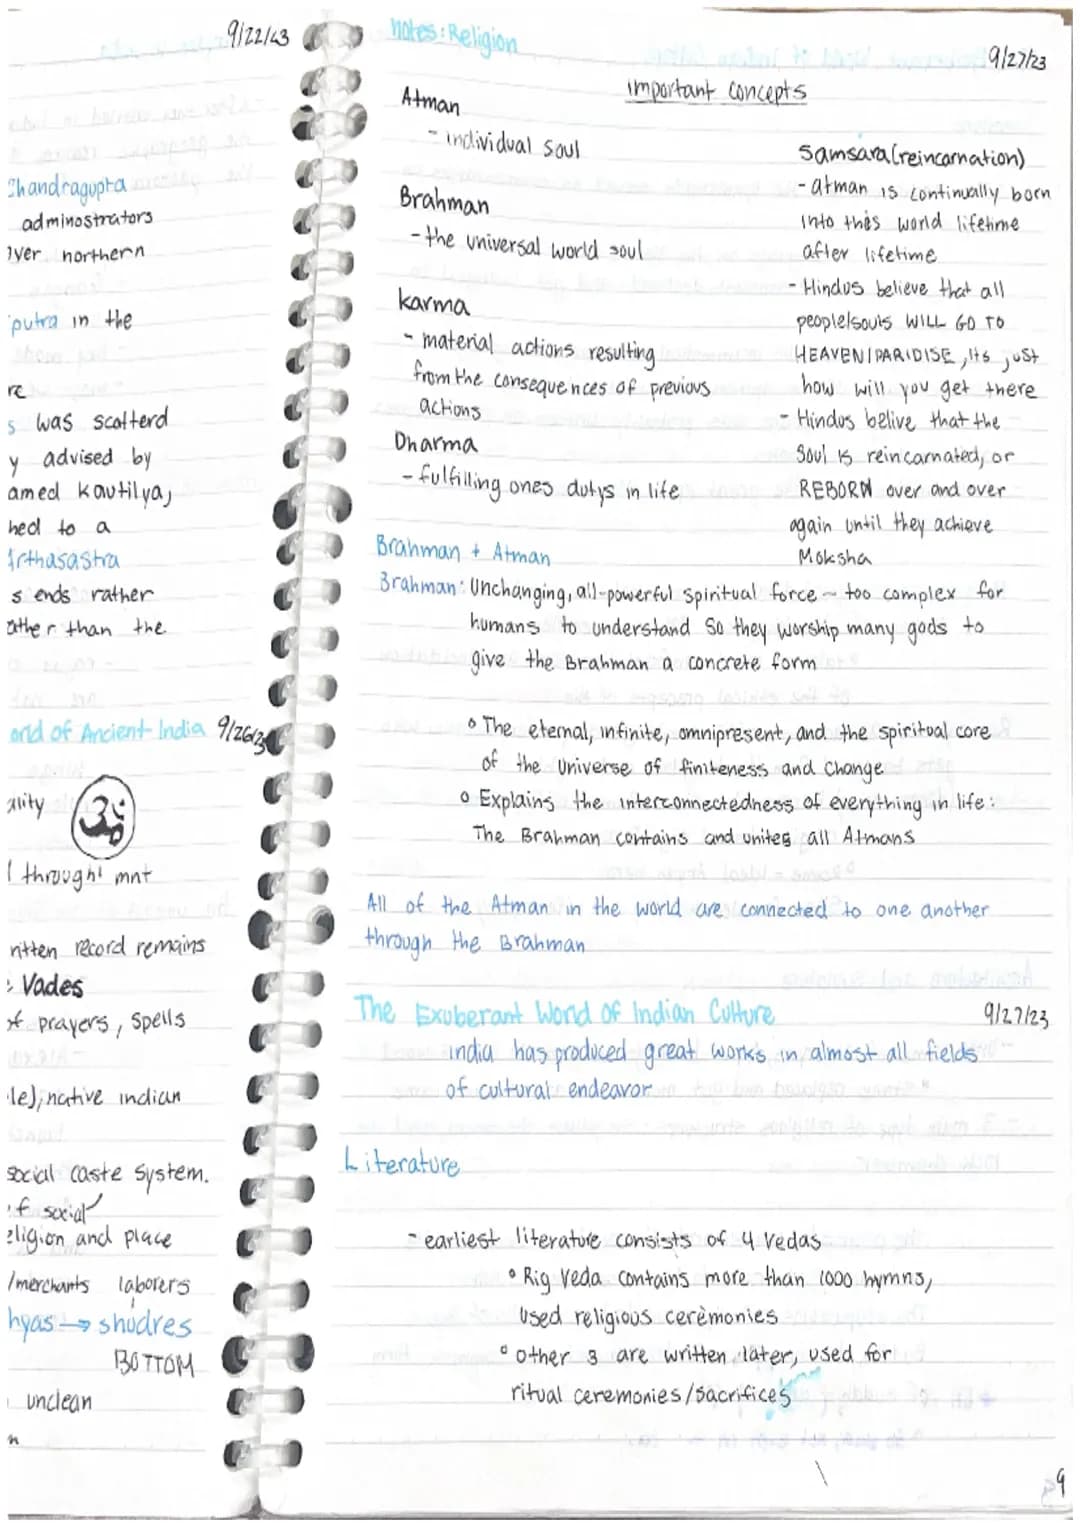 9/22/23
Chandragupta
adminostrators
over northern
putra in the
re
s was scatterd
y advised by
amed Kautilya,
hed to a
Arthasastra
s ends rather
ather than the
orld of Ancient India 9/26/23
ality
through
ritten record remains
Vades
of prayers, spells
le), native indian
social caste system.
of social
eligion and place
/merchants laborers
hyas → shudres
BOTTOM
unclean
n
notes: Religion
9/27/23
important concepts
Atman
- individual soul
Brahman
- the universal world soul
karma
- material actions resulting
from the consequences of previous
actions
Dharma
- fulfilling ones dutys in life
Samsara (reincarnation)
- atman is continually born
into this world lifetime
after lifetime
- Hindus believe that all
people/souls WILL GO TO
HEAVEN/PARIDISE, its just
how will you get there
- Hindus belive that the
Soul is reincarnated, or
REBORN over and over
again until they achieve
Moksha
Brahman + Atman
Brahman: Unchanging, all-powerful spiritual force - too complex for
humans to understand so they worship many gods to
give the Brahman a concrete form
° The eternal, infinite, omnipresent, and the spiritual core
of the Universe of finiteness and change
° Explains the interconnectedness of everything in life:
The Brahman contains and unites all Atmans
All of the Atman in the world are connected to one another
through the Brahman
The Exuberant World of Indian Culture 9/27/23
india has produced great works in almost all fields
of cultural endeavor
Literature
- earliest literature consists of 4 Vedas
° Rig Veda contains more than 1000 hymns,
used religious ceremonies
° other 3 are written later, used for
ritual ceremonies/sacrifices
9